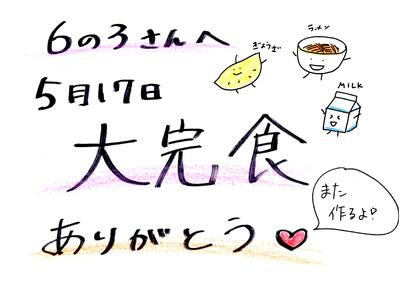 6の3さんへ
5月17日
大完食
ありがとう
ぎょうざ
ラーメン
MILK
また
作るよ!